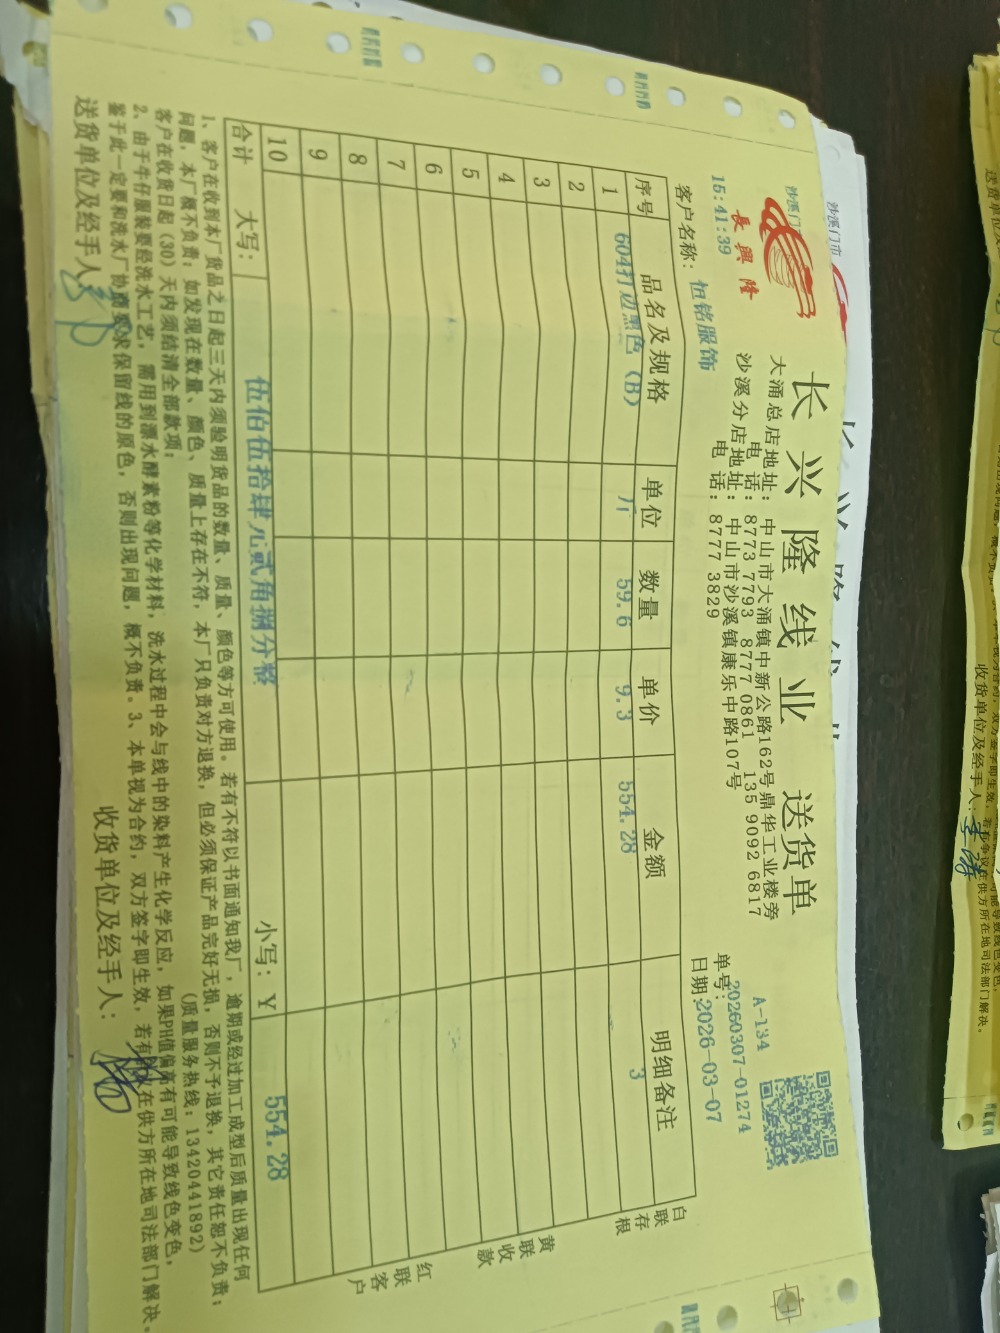 長興隆
长兴隆线业 送货单
大涌总店地址：中山市大涌镇中新公路162号鼎华工业楼旁
电话：8773 7793 8777 0861 135 9092 6817
沙溪分店地址：中山市沙溪镇康乐中路107号
电话：8777 3829
A-134
单号：20260307-01274
日期：2026-03-07
15:41:39
客户名称：恒铭服饰
序号 品名及规格 单位 数量 单价 金额 明细备注
1 604打边黑色（B） 斤 59.6 9.3 554.28 3
2
3
4
5
6
7
8
9
10
合计 大写：伍佰伍拾肆元贰角捌分整 小写：Y 554.28
白联存根
黄联收款
红联客户
1、客户在收到本厂货品之日起三天内须验明货品的数量、质量、颜色等方可使用。若有不符以书面通知我厂，逾期或经过加工成型后质量出现任何
问题，本厂概不负责；如发现在数量、颜色、质量上存在不符，本厂只负责对方退换，但必须保证产品完好无损，否则不予退换，其它责任恕不负责；
客户在收货日起（30）天内须结清全部款项； （质量服务热线：13420441892）
2、由于牛仔服装要经洗水工艺，需用到漂水酵素粉等化学材料，洗水过程中会与线中的染料产生化学反应，如果PH值偏高有可能导致线色变色，
鉴于此一定要和洗水厂协商要求保留线的原色，否则出现问题，概不负责。3、本单视为合约，双方签字即生效，若有争议在供方所在地司法部门解决。
送货单位及经手人：
收货单位及经手人：
沙溪门市
收货单位及经手人：